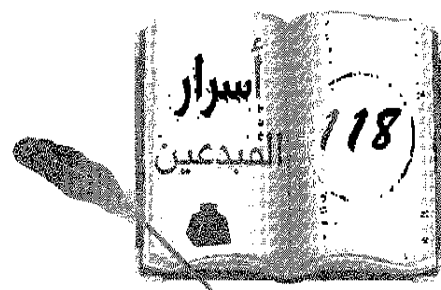 أسرار
المبدعين
118